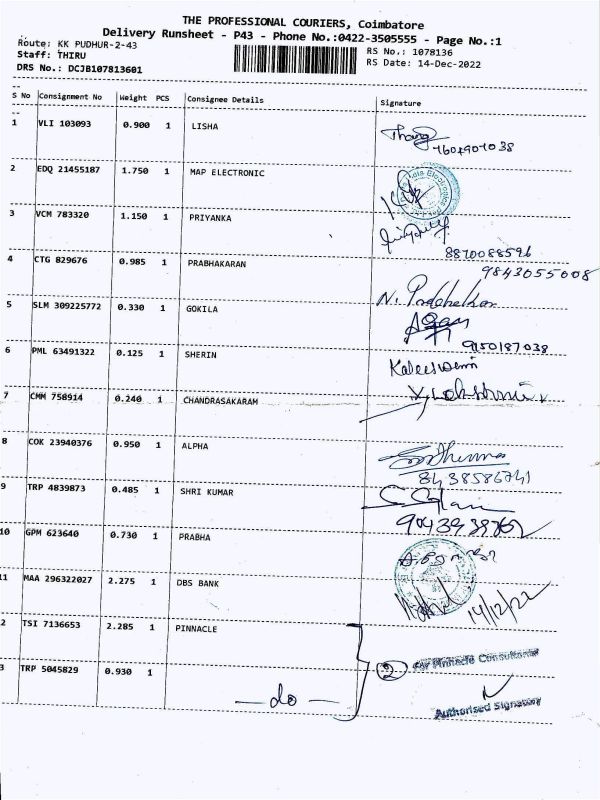 THE PROFESSIONAL COURIERS, Coimbatore
Delivery Runsheet - P43 - Phone No.:0422-3505555 - Page No.:1
Route: KK PUDHUR-2-43
Staff: THIRU
DRS No.: DCJB107813601
RS No.: 1078136
RS Date: 14-Dec-2022
S No Consignment No Weight PCS Consignee Details Signature
1 VLI 103093 0.900 1 LISHA
2 EDQ 21455187 1.750 1 MAP ELECTRONIC
3 VCM 783320 1.150 1 PRIYANKA
8870088596
4 CTG 829676 0.985 1 PRABHAKARAN 9843055008
5 SLM 309225772 0.330 1 GOKILA
9150187038
6 PML 63491322 0.125 1 SHERIN
7 CMM 758914 0.240 1 CHANDRASAKARAM
8 COK 23940376 0.950 1 ALPHA
8438586741
9 TRP 4839873 0.485 1 SHRI KUMAR
10 GPM 623640 0.730 1 PRABHA
11 MAA 296322027 2.275 1 DBS BANK 14/12/22
2 TSI 7136653 2.285 1 PINNACLE
2 For Pinnacle Consultants
3 TRP 5045829 0.930 1
— do —
Authorised Signatory